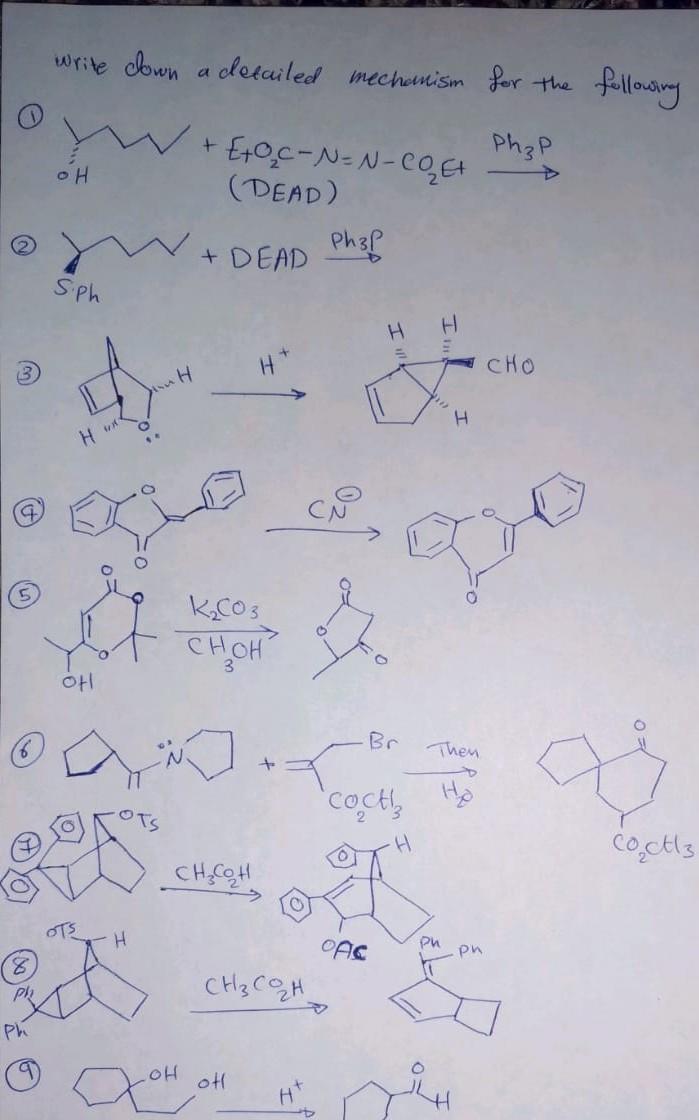 write down a detailed mechanism for the following
①
OH
+ EtO₂C-N=N-CO₂Et
(DEAD)
Ph₃P
②
SPh
+ DEAD
Ph₃P
③
H
H
O
H⁺
H H
CHO
H
④
O
O
CN⊖
O
O
⑤
O
O
O
OH
K₂CO₃
CH₃OH
O
O
O
⑥
N
+
Br
CO₂CH₃
Then
H₂O
O
CO₂CH₃
⑦
OTS
CH₃CO₂H
H
OAC
⑧
OTS
H
Ph
Ph
CH₃CO₂H
Ph
Ph
⑨
OH
OH
H⁺
O
H